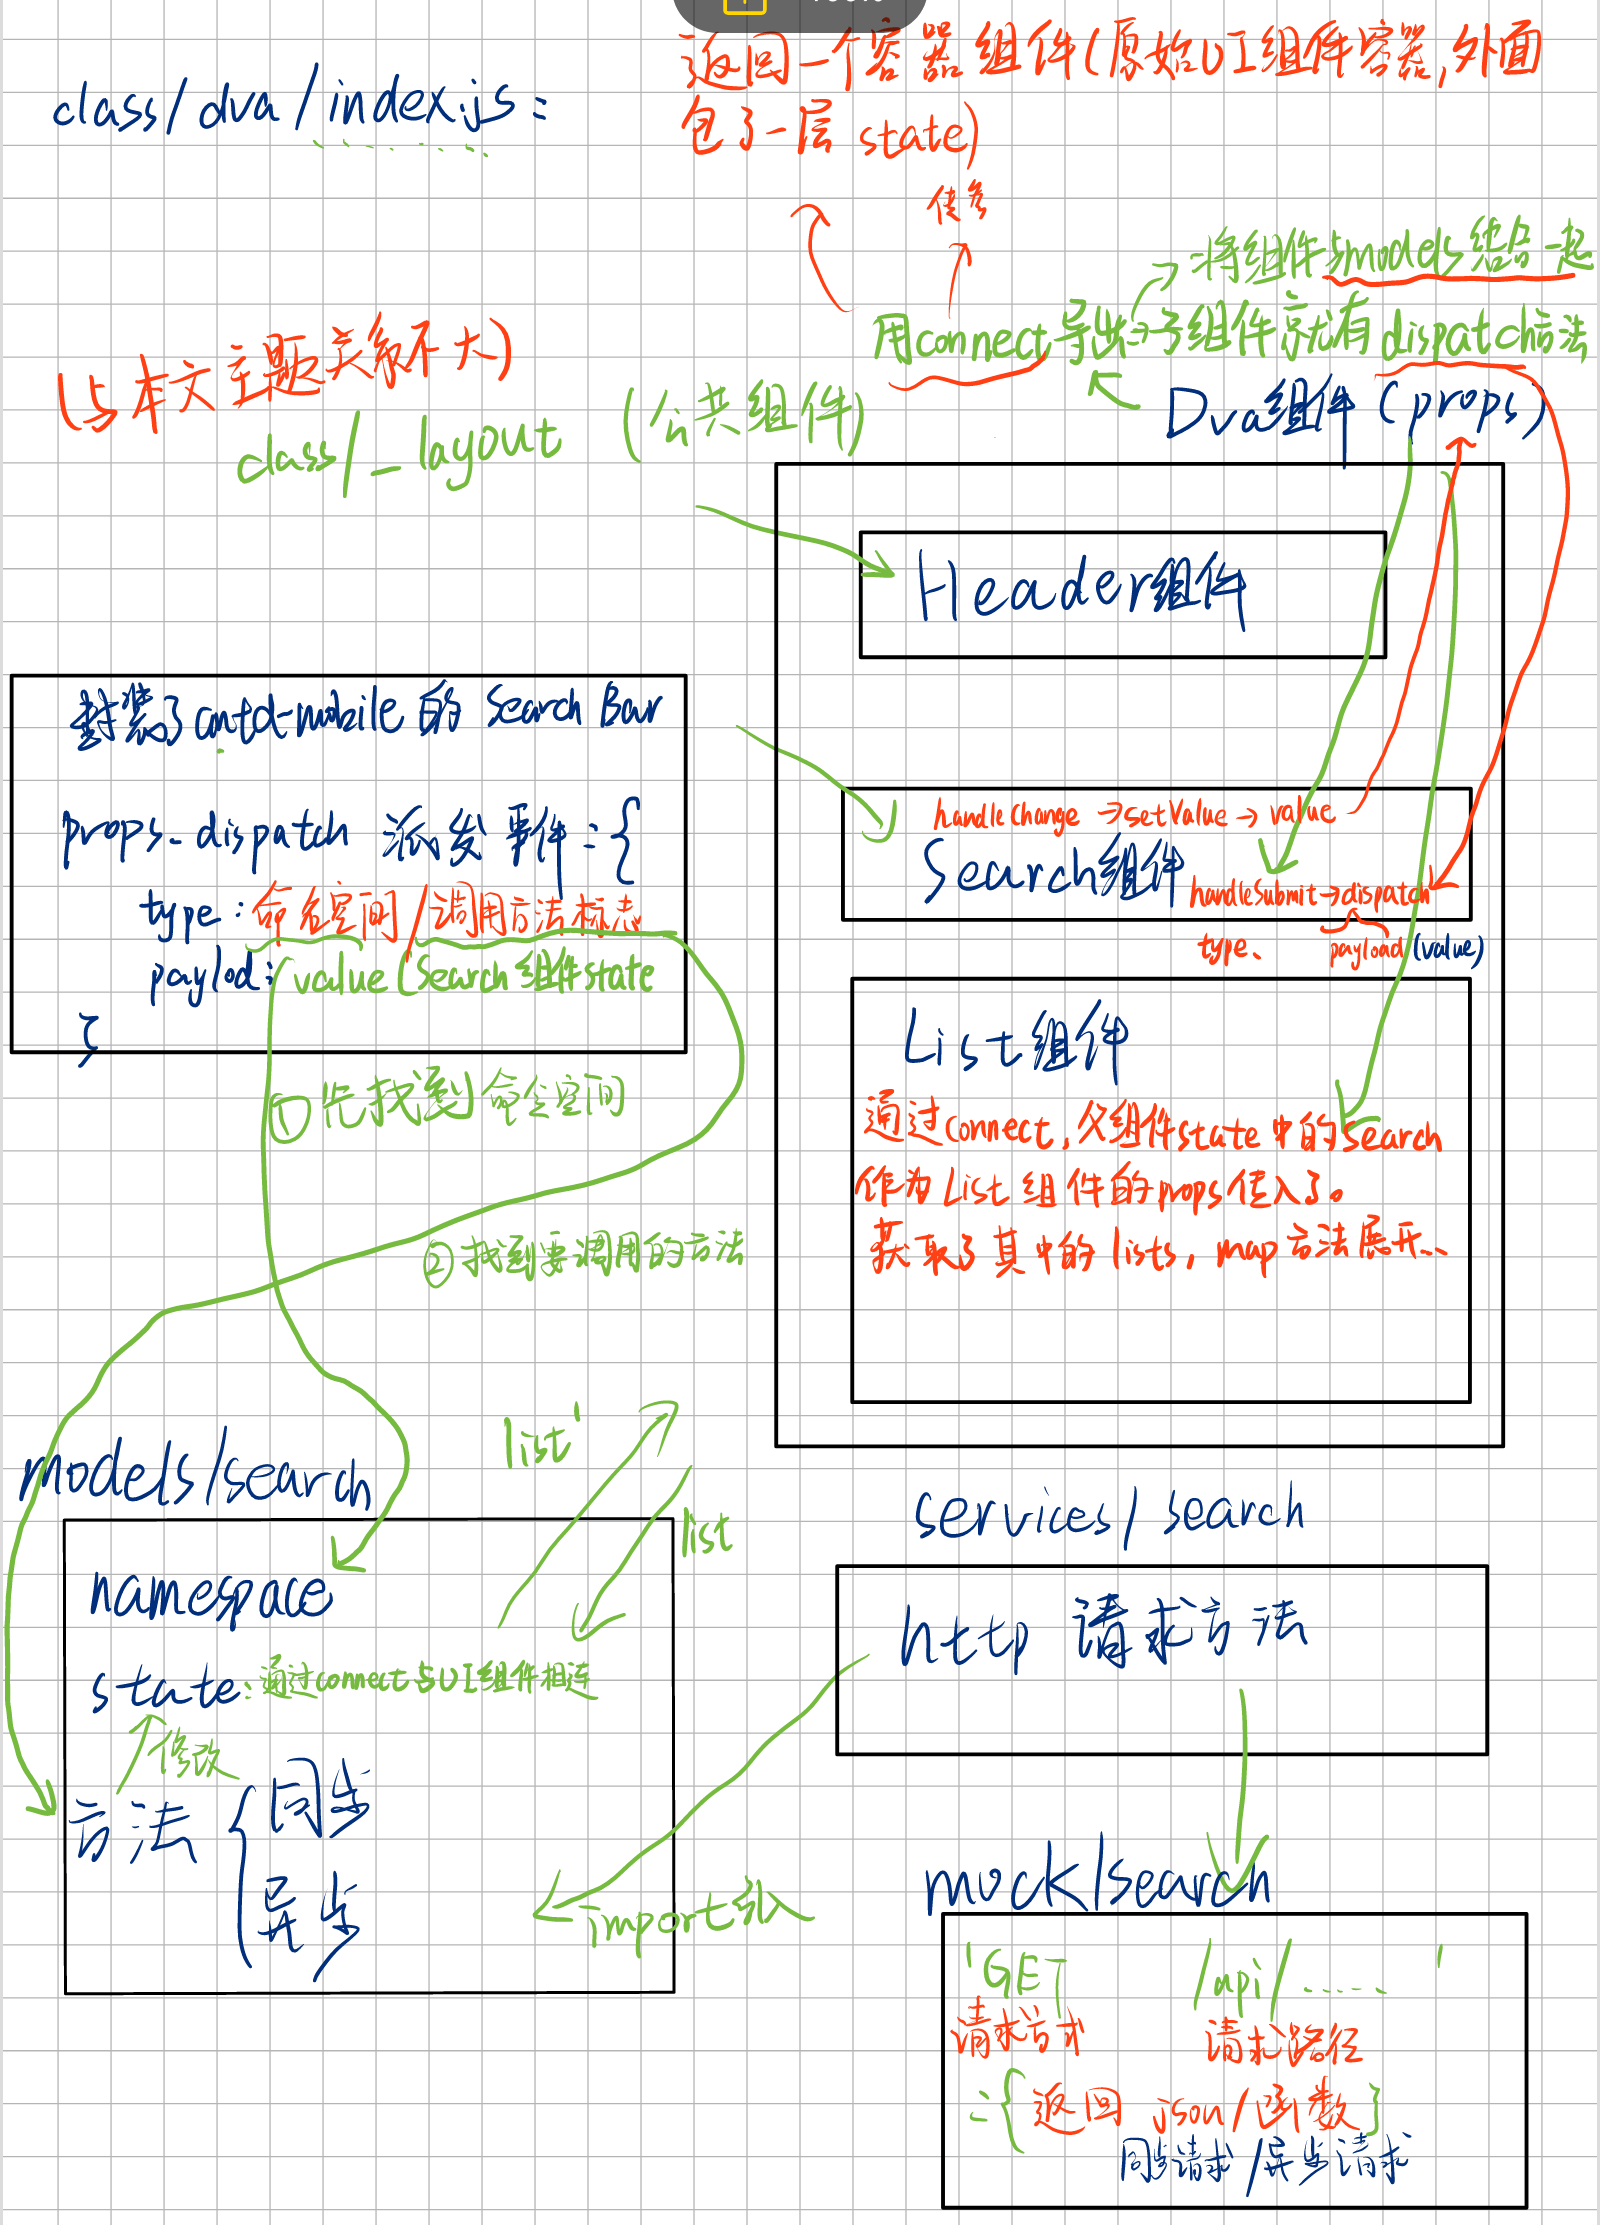 返回一个容器组件(原始UI组件容器,外面
包了一层 state)
class/dva/index.js:
传参
将组件与models结合一起
用connect导出→子组件就有dispatch方法
(与本文主题关系不大)
class/_layout (公共组件)
Dva组件 (props)
Header组件
封装了antd-mobile 的 Search Bar
props.dispatch 派发事件:{
type:命名空间/调用方法标志
paylod: value(Search组件state
}
handleChange→setValue→value
Search组件
handleSubmit→dispatch
type、 payload (value)
List组件
通过connect,父组件state中的search
作为List组件的props传入了。
获取了其中的lists, map方法展开..
①先找到命令空间
②找到要调用的方法
list'
list
models/search
namespace
state:通过connect与UI组件相连
修改
方法 { 同步
异步
services/search
http 请求方法
import引入
mock/search
'GET /api/......'
请求方式 请求路径
:{返回 json/函数}
同步请求/异步请求